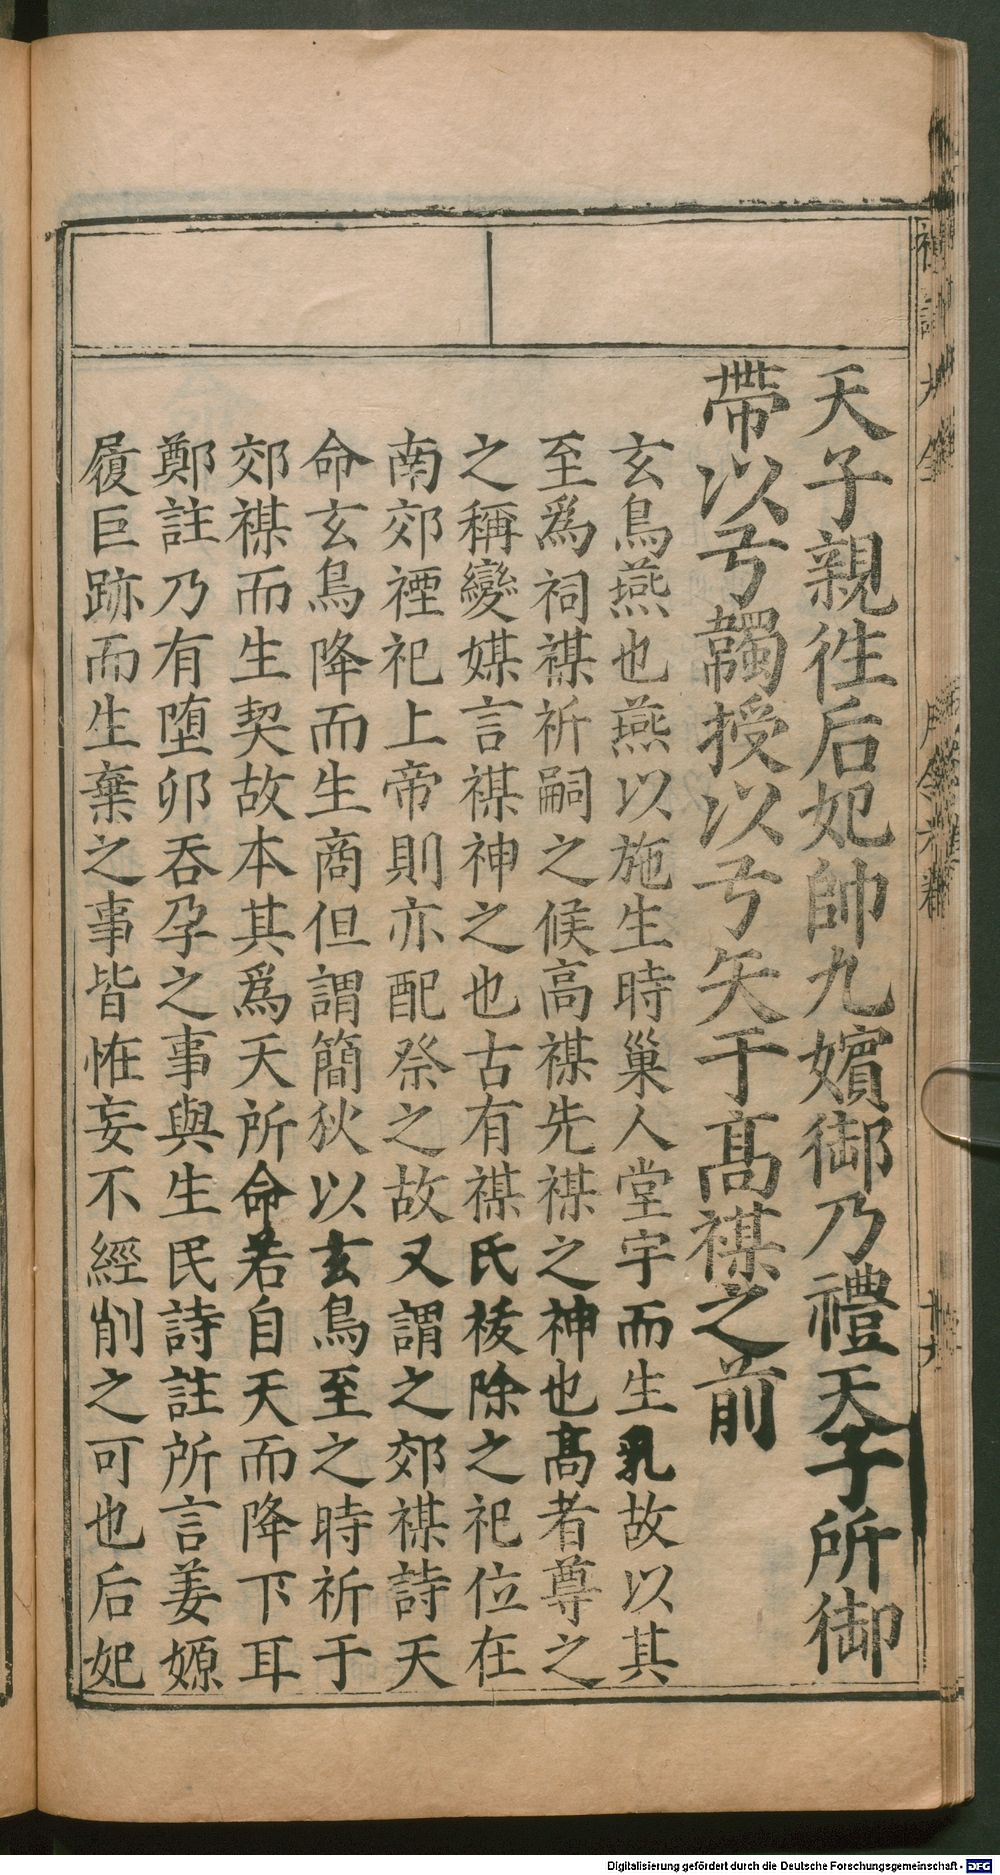 天子親徃后妃帥九嬪御乃禮天子所御
帶以弓韣授以弓矢于高禖之前
玄鳥燕也燕以施生時巢人堂宇而生乳故以其
至爲祠禖祈嗣之候高禖先禖之神也高者尊之
之稱變媒言禖神之也古有禖氏祓除之祀位在
南郊禋祀上帝則亦配祭之故又謂之郊禖詩天
命玄鳥降而生商但謂簡狄以玄鳥至之時祈于
郊禖而生契故本其爲天所命若自天而降下耳
鄭註乃有墮卵吞孕之事與生民詩註所言姜嫄
履巨跡而生棄之事皆恠妄不經削之可也后妃
Digitalisierung gefördert durch die Deutsche Forschungsgemeinschaft - DFG